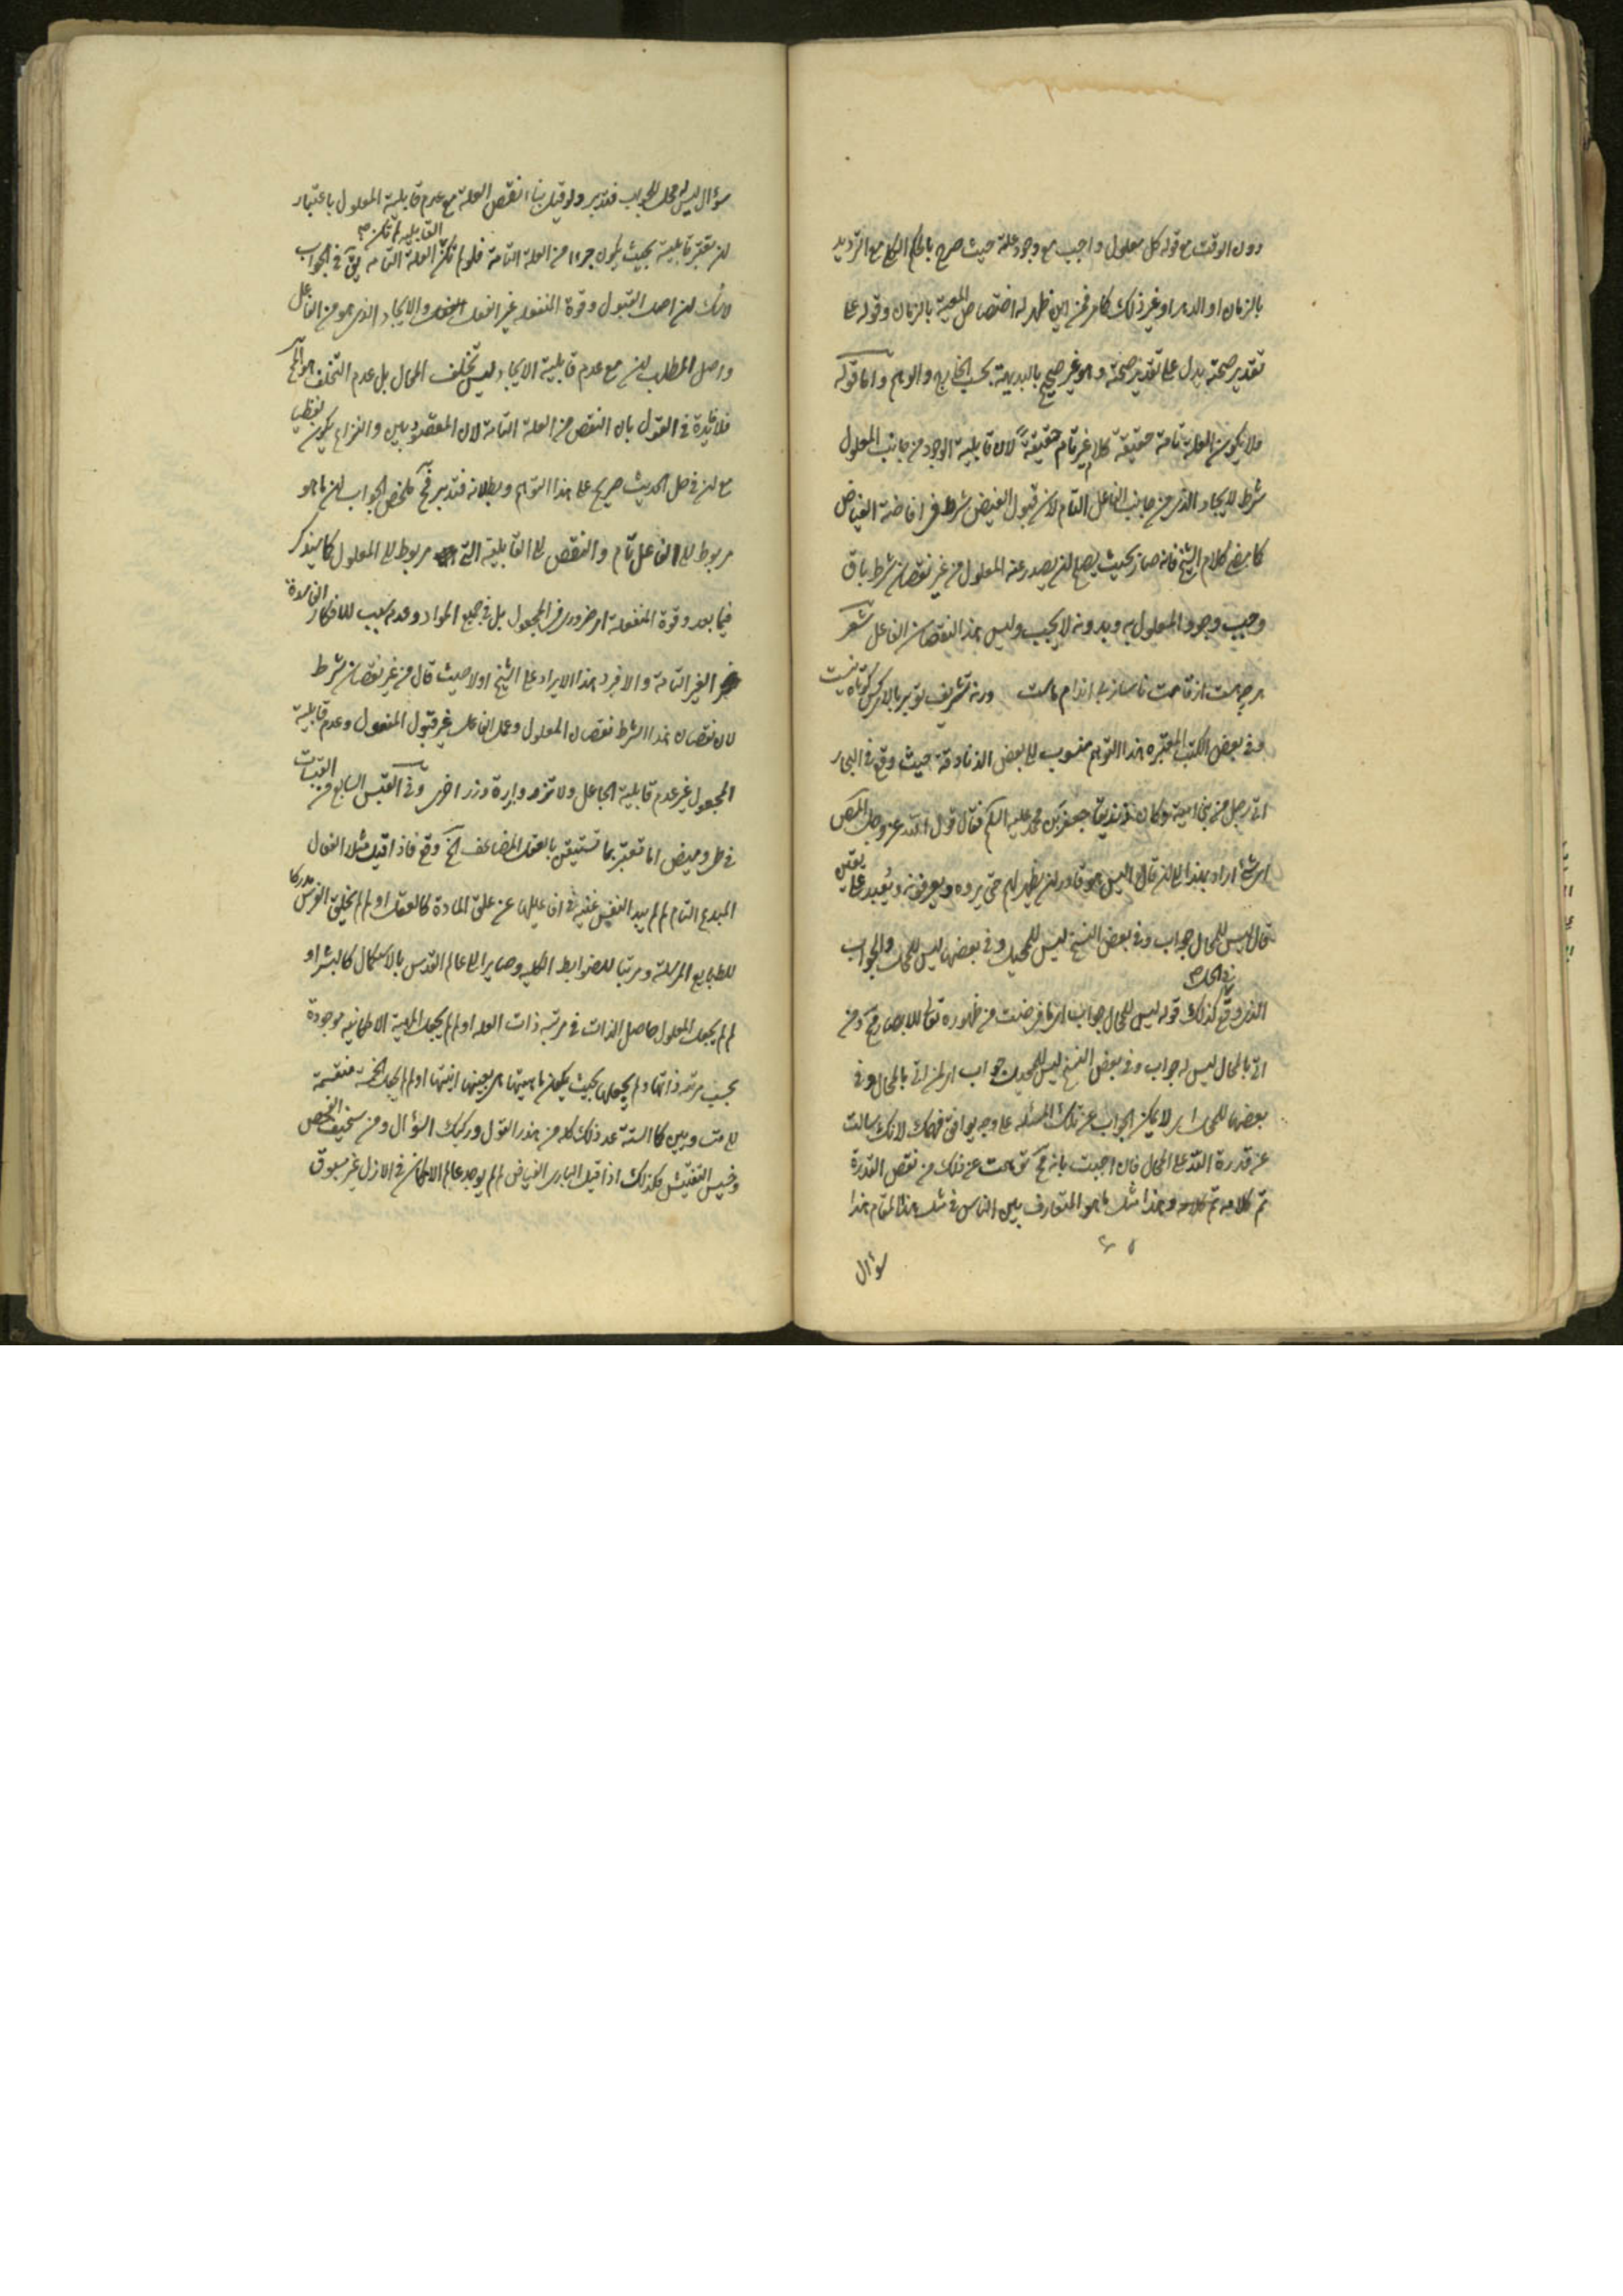 دون الوقت مع قوله كل معلول واجب مع وجود علة حيث صرح بالحكم الكلي مع الترديد
بالزمان او الدهر او غير ذلك كما مر فمن اين ظهر له اختصاص المعية بالزمان وقوله على
تقدير صحته يدل على تقدير صحته وهو غير صحيح بالبديهة بحسب الخارج والوهم واما قوله
فلا يكون العلة تامة حقيقة كلام غير تام حقيقة لان قابلية الوجود من جانب المعلول
شرط للايجاد الذي من جانب الفاعل التام لان قبول الفيض شرط في افاضة الفياض
كما مضى كلام الشيخ فانه صار بحيث يصلح لان يصدر عنه المعلول من غير نقصان شرط باق
وجب وجود المعلول به وبدونه لا يجب وليس هذا النقصان الفاعل شعر
هر چه هست از قامت ناساز بی اندام ماست ورنه تشریف تو بر بالای کس کوتاه نیست
وفي بعض الكتب المعتبره هذا التوهم منسوب الى بعض الزنادقة حيث وقع في البحار
اتى رجل من بني امية وكان زنديقا جعفر بن محمد عليه السلم فقال قول الله عز وجل المص
اي شئ اراد بهذا الى ان قال اليس هو قادر ان يظهر لهم حتى يروه ويعرفونه ويعبد على يقين
قال ليس للمحال جواب وفي بعض النسخ ليس للمحيل وفي بعضها ليس للمحل والجواب
الذي وقع كذلك قوله ليس للمحال جواب اي ما فرضت من ظهوره تعالى للابصار مح ومن
اتى بالمحال ليس له جواب وفي بعض النسخ ليس للمحيل جواب اي لمن اتى بالمحال وفي
بعضها للمحل اي لا يمكن الجواب عن تلك المسئلة على وجه يوافق فهمك لانك سالت
عن قدرة الله على المحال فان اجبت بانه مح توهمت عن ذلك من نقص القدرة
تم كلامه وهذا مثل ما هو المتعارف بين الناس في مثل هذا المقام هذا
سؤال
سؤال ليس له محل للجواب فتدبر ولو قيل بناء نقص العلة مع عدم قابلية المعلول باعتبار
ان تعتبر قابلية بحيث يكون جزءا من العلة التامة فلو لم تكن القابلية لم تكن العلة التامة يقال في الجواب
لا شك ان اصل القبول وقوة المنفعله غير الفعل والايجاد الذي هو من الفاعل
واصل المطلب ان مع عدم قابلية الايجاد ليس تخلف المحال بل عدم التخلف هو المح
فلا فائدة في القول بان النقص من العلة التامة لان المقصود بين والنزاع يكون لفظيا
مع ان في حل الحديث صريح على هذا التوهم وبطلانه فتدبر فح ملخص الجواب ان ما هو
مربوط الى الفاعل تام والنقص الى القابلية التي مربوط الى المعلول كما سيذكر
فيما بعد وقوة المنفعلة امر ضروري في المجعول بل في جميع المواد وعدم سبب للافكار الفاسدة
الغير التامة والا فيرد هذا الايراد على الشيخ اولا حيث قال من غير نقصان شرط
لان نقصان هذا الشرط نقصان المعلول وعمل الفاعل غير قبول المنفعول وعدم قابلية
المجعول غير عدم قابلية الجاعل ولا تزر وازرة وزر اخرى وفي القبس السابع من القبسات
في طي وميض اما تعتبر بما تستيقن بالعقل المضاعف الخ وقع فاذا قيل مثلا الفعال
المبدع التام لم لم يبدا النفس غنية في افاعيلها عن علق المادة كالعقل او لم لم يخلق الفرس مدركا
للطبايع المرسلة ومرتبا للضوابط الكلية وصايرا الى عالم القدس بالاستكمال كالبشر او
لم لم يجعل المعلول حاصل الذات في مرتبة ذات العلة او لم لم يجعل المهية الامكانية موجودة
بحسب مرتبة ذاتها ولم يجعلها بحيث يكون ماهيتها هي بعينها انيتها او لم لم يجعل الخمسة منقسمة
الى متساويين كالستة عد ذلك كله من هذر القول وركيك السؤال ومن سخيف الفحص
وخسيس التفتيش فكذلك اذا قيل الباري الفياض لم لم يوجد عالم الامكان في الازل غير مسبوق